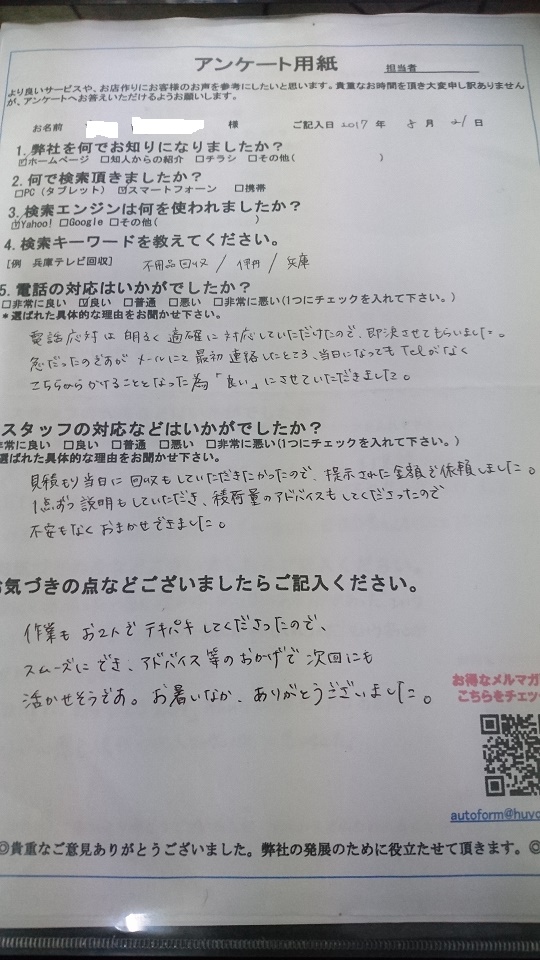 アンケート用紙
担当者
より良いサービスや、お店作りにお客様のお声を参考にしたいと思います。貴重なお時間を頂き大変申し訳ありません
が、アンケートへお答えいただけるようお願いします。
お名前 様 ご記入日 2017 年 5 月 21 日
1. 弊社を何でお知りになりましたか?
☑ホームページ □知人からの紹介 □チラシ □その他( )
2. 何で検索頂きましたか?
□PC(タブレット) ☑スマートフォーン □携帯
3. 検索エンジンは何を使われましたか?
☑Yahoo! □Google □その他( )
4. 検索キーワードを教えてください。
[例 兵庫テレビ回収] 不用品回収 / 伊丹 / 兵庫
5. 電話の対応はいかがでしたか?
□非常に良い ☑良い □普通 □悪い □非常に悪い(1つにチェックを入れて下さい。)
*選ばれた具体的な理由をお聞かせ下さい。
電話応対は明るく適確に対応していただけたので、即決させてもらいました。
急だったのですがメールにて最初連絡したところ、当日になってもTelがなく
こちらからかけることとなった為「良い」にさせていただきました。
スタッフの対応などはいかがでしたか?
非常に良い □良い □普通 □悪い □非常に悪い(1つにチェックを入れて下さい。)
選ばれた具体的な理由をお聞かせ下さい。
見積もり当日に回収もしていただきたかったので、提示された金額で依頼しました。
1点ずつ説明もしていただき、積荷量のアドバイスもしてくださったので
不安もなくおまかせできました。
お気づきの点などございましたらご記入ください。
作業もお2人でテキパキしてくださったので、
スムーズにでき、アドバイス等のおかげで次回にも
活かせそうです。お暑いなか、ありがとうございました。
お得なメルマガ
こちらをチェッ
autoform@huvo
◎貴重なご意見ありがとうございました。弊社の発展のために役立たせて頂きます。◎